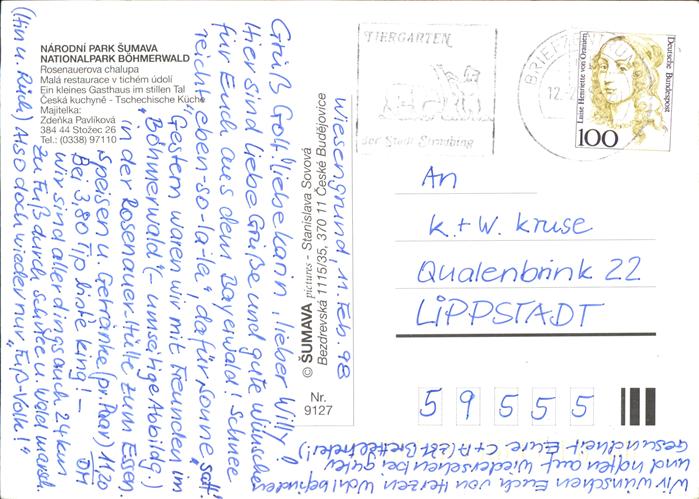 NÁRODNÍ PARK ŠUMAVA
NATIONALPARK BÖHMERWALD
Rosenauerova chalupa
Malá restaurace v tichém údolí
Ein kleines Gasthaus im stillen Tal
Česká kuchyně - Tschechische Küche
Majitelka:
Zdeňka Pavlíková
384 44 Stožec 26
Tel.: (0338) 97110
Wiesengrund, 11. Feb. 98
Grüß Gott! liebe Karin, lieber Willy!
Hier sind liebe Grüße und gute Wünsche
für Euch aus dem Bayerwald! Schnee
reicht „eben-so-la-la", dafür Sonne satt.
Gestern waren wir mit Freunden im
„Böhmerwald" (- umseitige Abbildg.)
in der Rosenauer-Hütte zum Essen.
Speisen u. Getränke (pr. Paar) 11.20 DM
Bei 3,80 Tip biste King! -
Wir sind allerdings auch 24 km
zu Fuß durch Schnee u. Wald marsch.
(Hin u. Rück) Also doch wieder nur „Fuß-Volk"!
Wir wünschen Euch von Herzen Wohlbefinden
und hoffen auf Wiedersehen bei guter
Gesundheit Eure C+A (zZt Brettltreter!)
© ŠUMAVA pictures - Stanislava Sovová
Bezdrevská 1115/35, 370 11 České Budějovice
Nr.
9127
TIERGARTEN
der Stadt Straubing
BRIEFZENTRUM
12.2
Luise Henriette von Oranien
Deutsche Bundespost
100
An
K. + W. Kruse
Qualenbrink 22
LIPPSTADT
59555